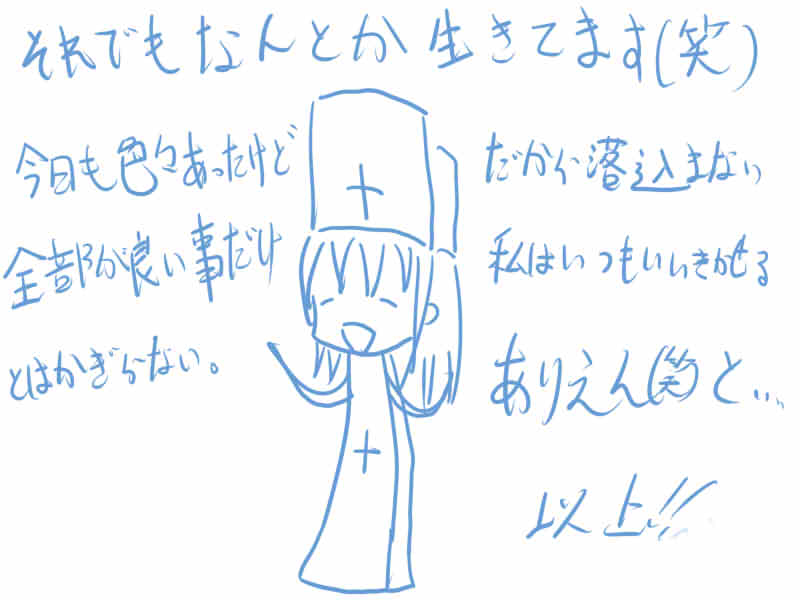 それでもなんとか生きてます(笑)
今日も色々あったけど
全部が良い事だけ
とはかぎらない。
だから落込まない
私はいつもいいきかせる
ありえん(笑)と…
以上!!